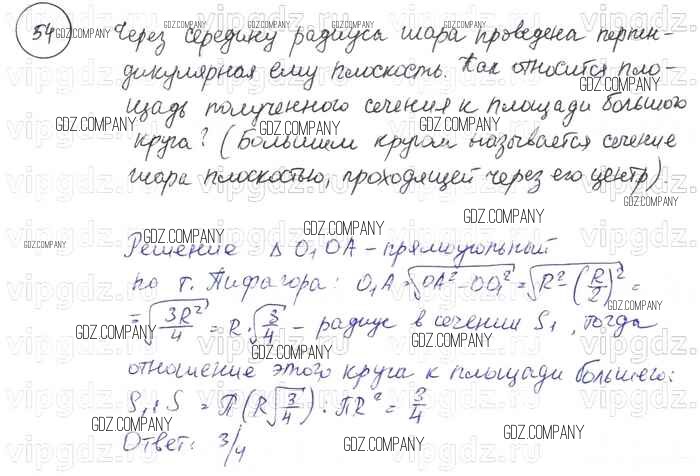 54 Через середину радиуса шара проведена перпен-
дикулярная ему плоскость. Как относится пло-
щадь полученного сечения к площади большого
круга? (Большим кругом называется сечение
шара плоскостью, проходящей через его центр).
Решение Δ O₁OA – прямоугольный
по т. Пифагора: O₁A = √(OA² – OO₁²) = √(R² – (R/2)²) =
= √(3R²/4) = R·√(3/4) – радиус в сечении S₁, тогда
отношение этого круга к площади большего:
S₁ : S = π(R√(3/4)) : πR² = 3/4
Ответ: 3/4
GDZ.COMPANY
vipgdz.ru